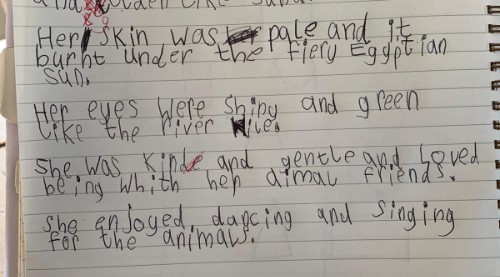 golden like sand.
Her skin was pale and it
burnt under the fiery Egyptian
sun.
Her eyes were shiny and green
like the river Nile.
She was kind and gentle and loved
being whith her aimal friends.
she enjoyed dancing and singing
for the animals.